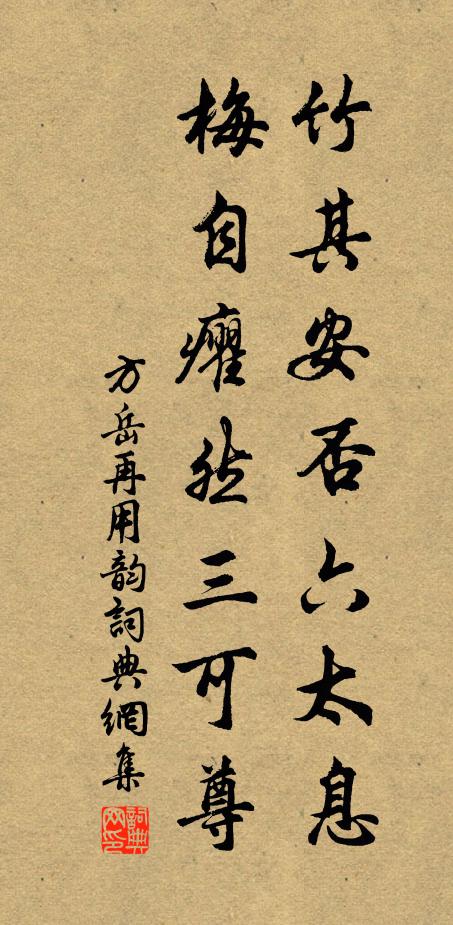 竹其安否六太息
梅自癯然三可尊
方岳再用韵詞典網集
詞典網印